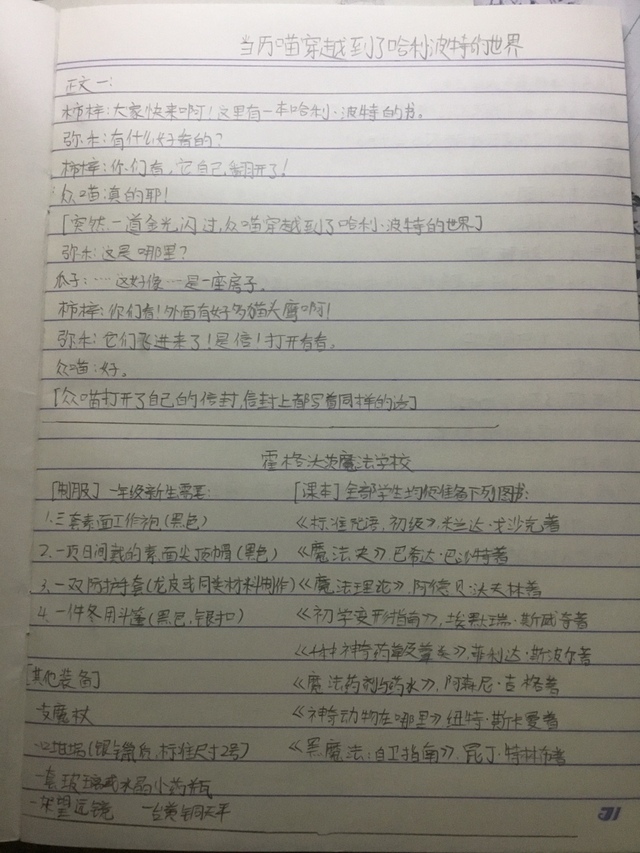 当万喵穿越到了哈利波特的世界
正文一:
柿梓:大家快来啊!这里有一本哈利·波特的书。
弥木:有什么好看的?
柿梓:你们看,它自己翻开了!
众喵:真的耶!
[突然,一道金光闪过,众喵穿越到了哈利·波特的世界]
弥木:这是哪里?
瓜子:…这好像…是一座房子。
柿梓:你们看!外面有好多猫头鹰啊!
弥木:它们飞进来了!是信!打开看看。
众喵:好。
[众喵打开了自己的信封,信封上都写着同样的话]
霍格沃茨魔法学校
[制服]一年级新生需要:
1.三套素面工作袍(黑色)
2.一顶日间戴的素面尖顶帽(黑色)
3.一双防护手套(龙皮或同类材料制作)
4.一件冬用斗篷(黑色,银扣)
[其他装备]
支魔杖
(锡镴质,标准尺寸2号)
一套玻璃或水晶小药瓶
一架望远镜 一台黄铜天平
[课本]全部学生均须准备下列图书:
《标准咒语,初级》,米兰达·戈沙克著
《魔法史》,巴希达·巴沙特著
《魔法理论》,阿德贝·沃夫林著
《初学变形指南》,埃默瑞·斯威奇著
神奇药草及蕈类》,菲利达·斯波尔著
《魔法药剂与药水》,阿森尼·吉格著
《神奇动物在哪里》,纽特·斯卡曼著
《黑魔法:自卫指南》,昆丁·特林布著
31